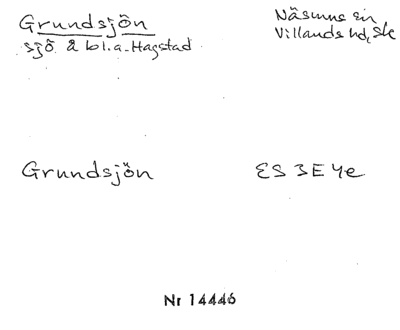 Grundsjön
sjö å bl.a. Hagstad
Näsums sn
Villands hd, Sk
Grundsjön
ES 3E 4e
Nr 14446